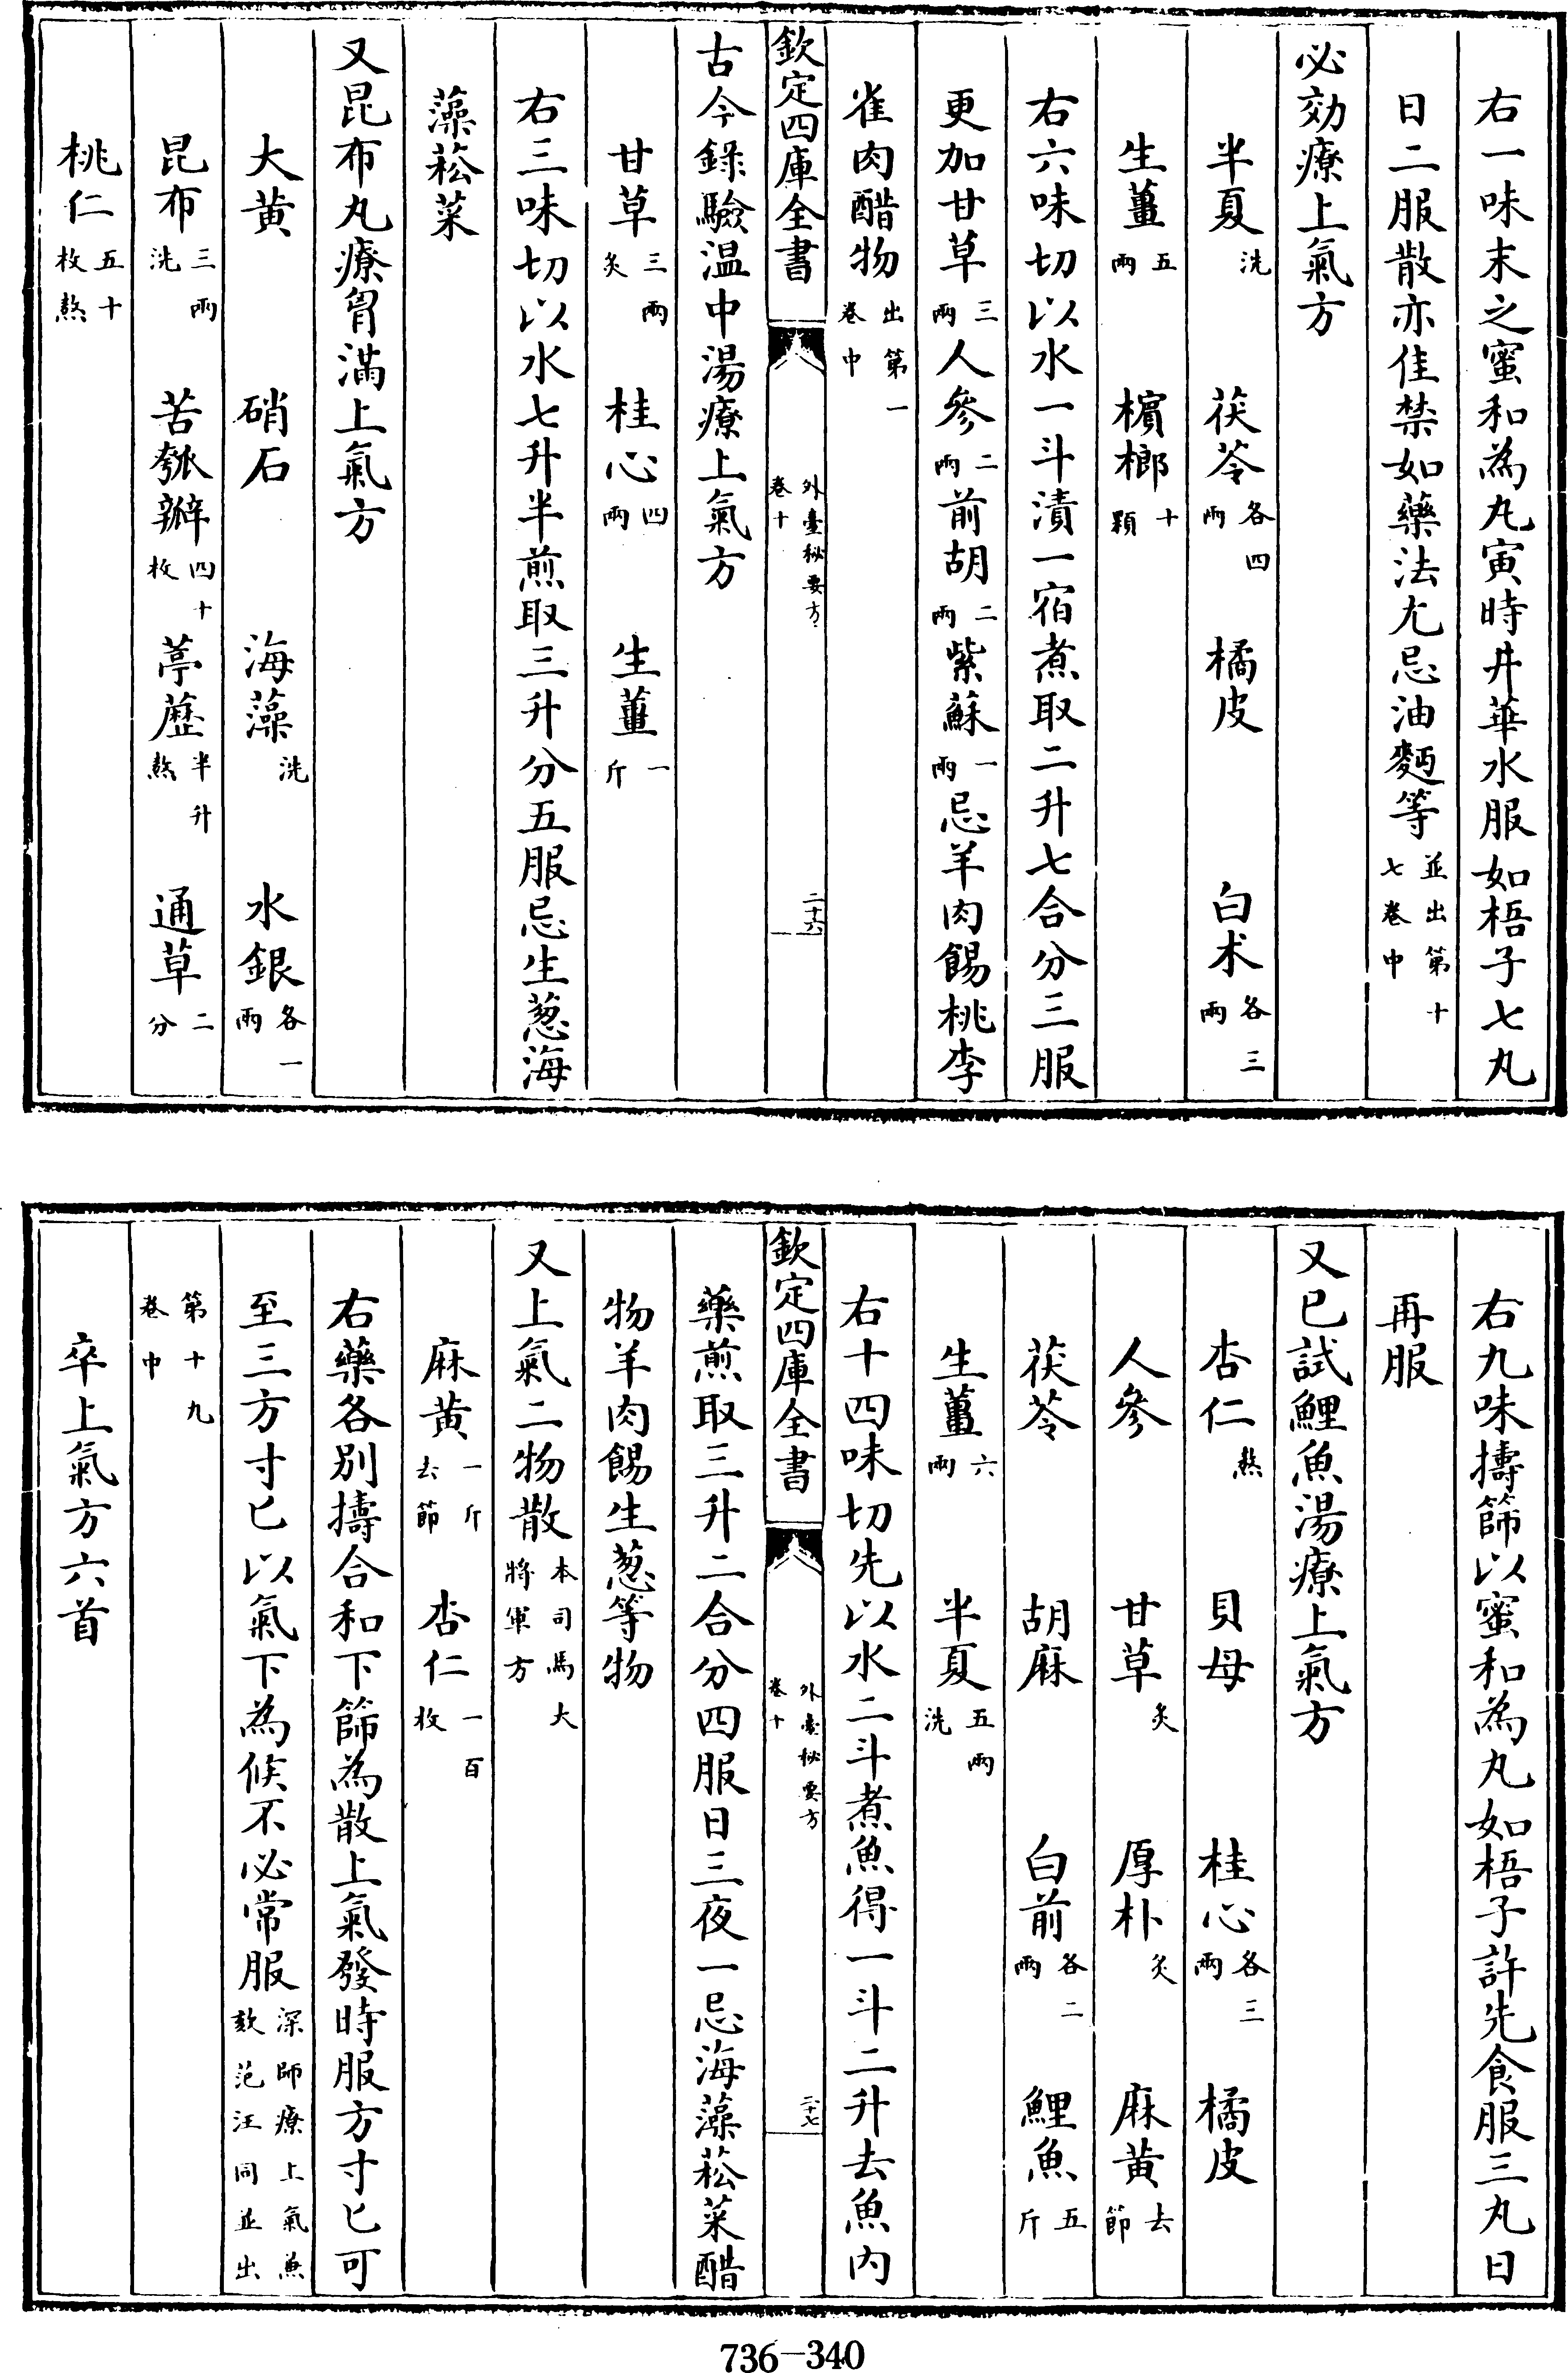 右一味末之蜜和為丸寅時井華水服如梧子七丸
日二服散亦佳禁如藥法尤忌油麪等並出第十七卷中
必効療上氣方
半夏洗 茯苓各四兩 橘皮 白术各三兩
生薑五兩 檳榔十顆
右六味切以水一斗漬一宿煮取二升七合分三服
更加甘草三兩人參二兩前胡二兩紫蘇一兩忌羊肉餳桃李
雀肉醋物出第一卷中
欽定四庫全書 外臺秘要方卷十 二十六
古今錄驗温中湯療上氣方
甘草三兩炙 桂心四兩 生薑一斤
右三味切以水七升半煎取三升分五服忌生葱海
藻菘菜
又昆布丸療胷滿上氣方
大黄 硝石 海藻洗 水銀各一兩
昆布三兩洗 苦瓠瓣四十枚 葶藶半升熬 通草二分
桃仁五十枚熬
右九味擣篩以蜜和為丸如梧子許先食服三丸日
再服
又已試鯉魚湯療上氣方
杏仁熬 貝母 桂心各三兩 橘皮
人參 甘草炙 厚朴炙 麻黄去節
茯苓 胡麻 白前各二兩 鯉魚五斤
生薑六兩 半夏五兩洗
右十四味切先以水二斗煮魚得一斗二升去魚内
欽定四庫全書 外臺秘要方卷十 二十七
藥煎取三升二合分四服日三夜一忌海藻菘菜醋
物羊肉餳生葱等物
又上氣二物散本司馬大將軍方
麻黄一斤去節 杏仁一百枚
右藥各別擣合和下篩為散上氣發時服方寸匕可
至三方寸匕以氣下為候不必常服深師療上氣兼欬范汪同並出
第十九卷中
卒上氣方六首
736-340